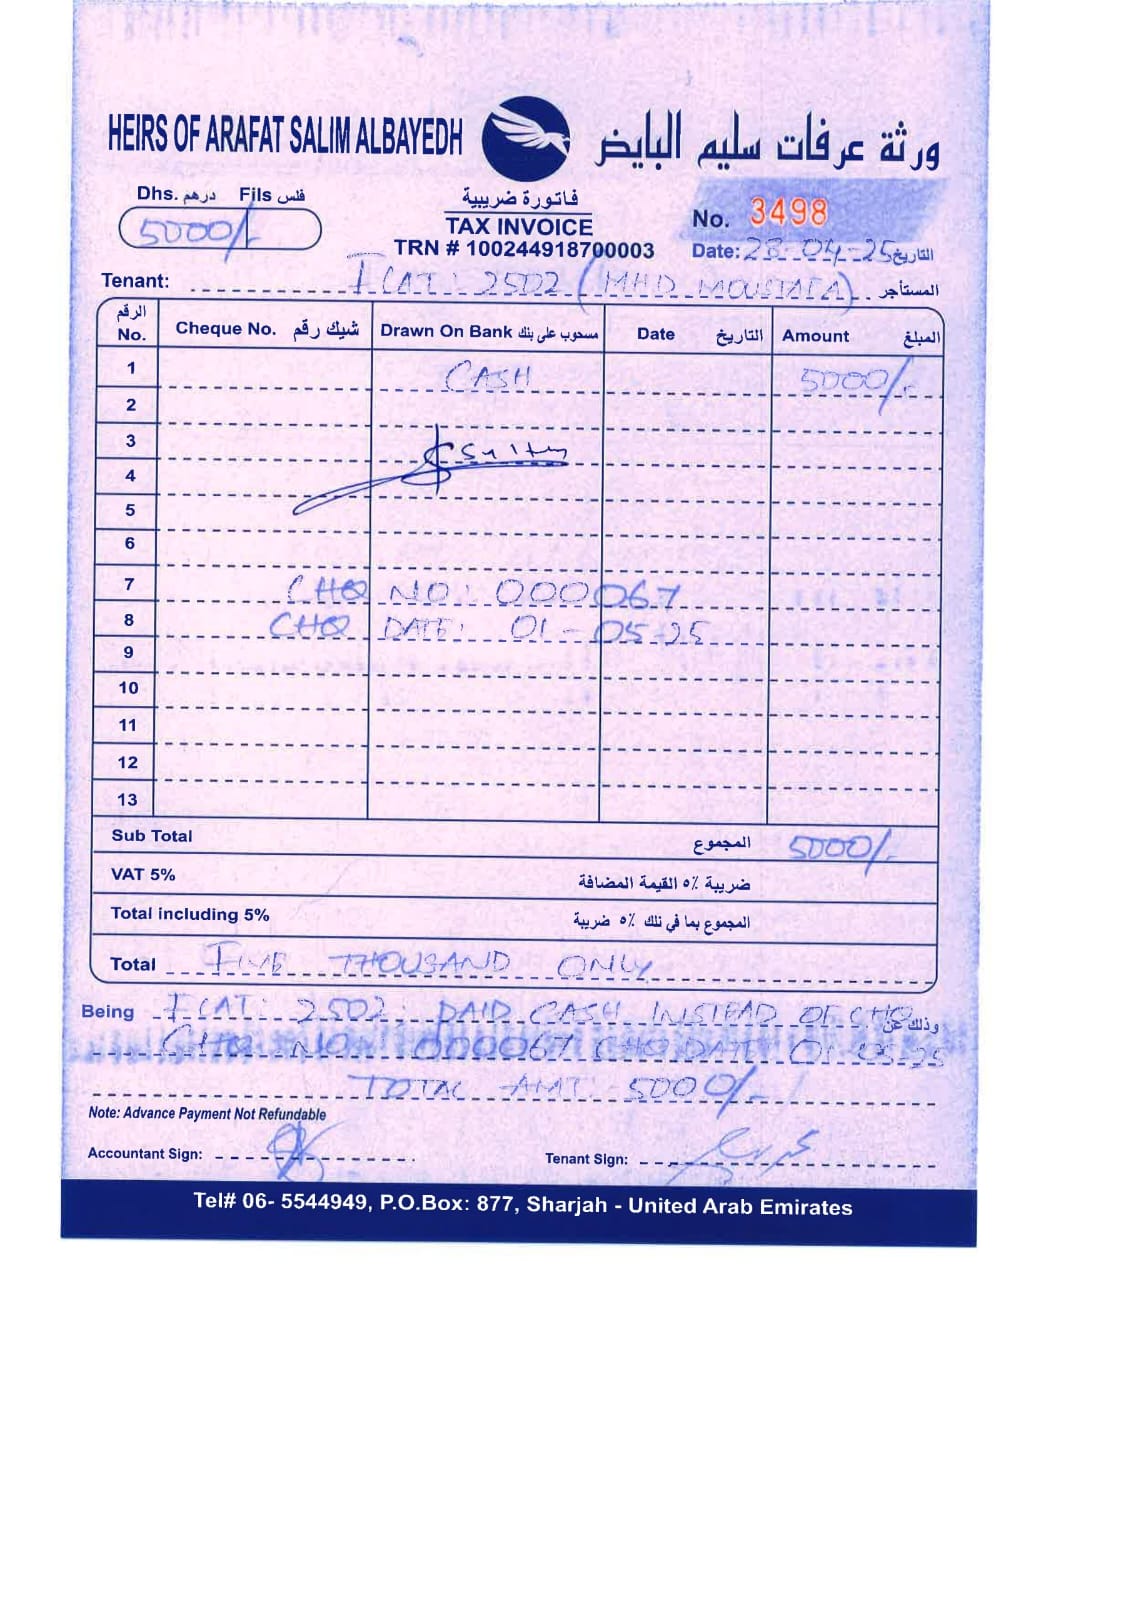 HEIRS OF ARAFAT SALIM ALBAYEDH ورثة عرفات سليم البايض
Dhs. درهم Fils فلس
5000/-
فاتورة ضريبية
TAX INVOICE
TRN # 100244918700003
No. 3498
Date: 28-04-25 التاريخ
Tenant: FLAT: 2502 (MHD MOUSTAFA) المستأجر
الرقم No. Cheque No. شيك رقم Drawn On Bank مسحوب على بنك Date التاريخ Amount المبلغ
1 CASH 5000/-
2
3
4
5
6
7 CHQ NO: 000067
8 CHQ DATE: 01-05-25
9
10
11
12
13
Sub Total المجموع 5000/-
VAT 5% ضريبة ٥٪ القيمة المضافة
Total including 5% المجموع بما في ذلك ٥٪ ضريبة
Total FIVE THOUSAND ONLY
Being FLAT: 2502 PAID CASH INSTEAD OF CHQ وذلك عن
CHQ NO: 000067 CHQ DATE: 01-05-25
TOTAL AMT: 5000/-
Note: Advance Payment Not Refundable
Accountant Sign: Tenant Sign:
Tel# 06- 5544949, P.O.Box: 877, Sharjah - United Arab Emirates